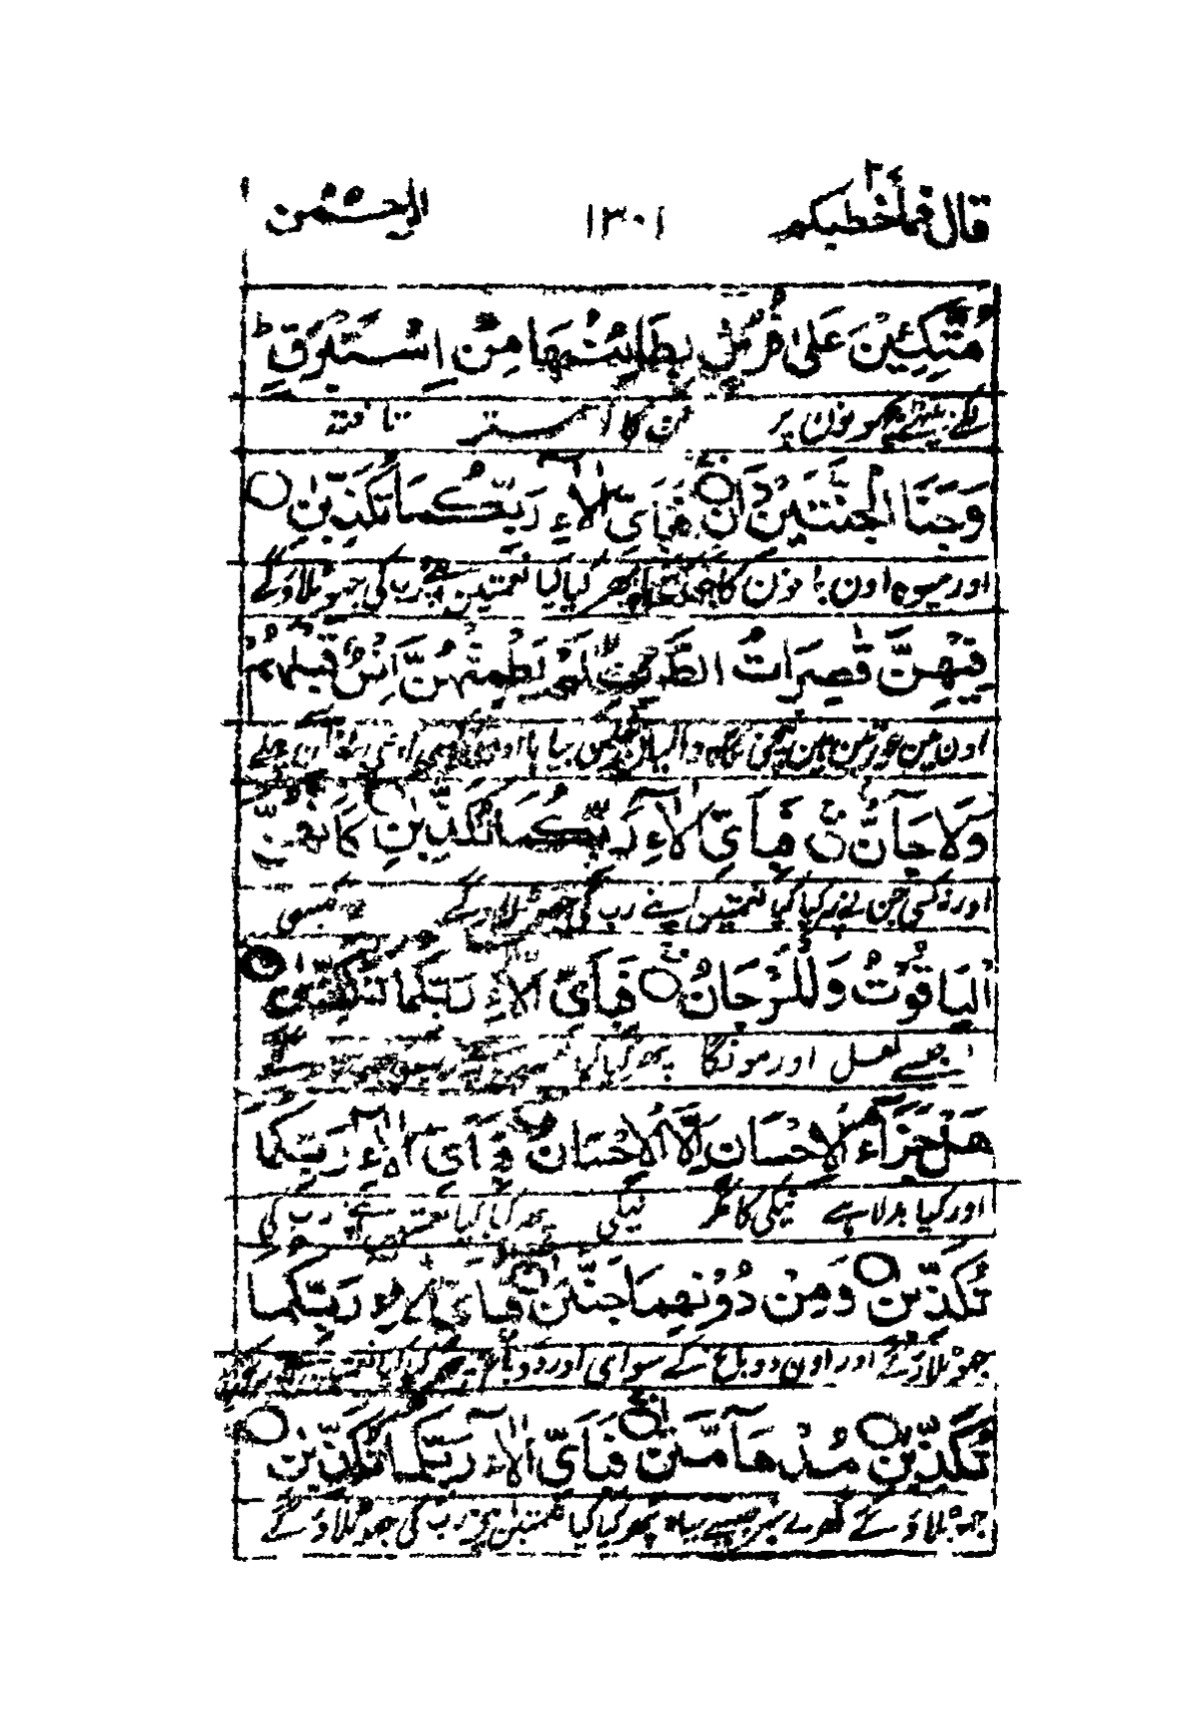 قال فما خطبكم ١٣٠١ الرحمن
مُتَّكِئِينَ عَلَىٰ فُرُشٍ بَطَائِنُهَا مِنْ اِسْتَبْرَقٍ ط
لگے بیٹھے بچھونون پر جن کا استر تافتہ
وَجَنَا الْجَنَّتَيْنِ دَانٍ ○ فَبِأَيِّ اٰلَآءِ رَبِّكُمَا تُكَذِّبٰنِ ○
اور میوہ اون باغون کا پھر کیا کیا نعمتین اپنے رب کی جھوٹلاؤگے
فِيْهِنَّ قٰصِرَاتُ الطَّرْفِ لَمْ يَطْمِثْهُنَّ اِنْسٌ قَبْلَهُمْ
اون مین عورتین ہین نیچی نگاہ والیان نہین پہلے
وَلَا جَآنٌّ ○ فَبِأَيِّ اٰلَآءِ رَبِّكُمَا تُكَذِّبٰنِ ○ كَاَنَّهُنَّ
اور نہ کسی جن نے پھر کیا کیا نعمتین اپنے رب کی جھوٹلاؤگے
الْيَاقُوْتُ وَالْمَرْجَانُ ○ فَبِأَيِّ اٰلَآءِ رَبِّكُمَا تُكَذِّبٰنِ ○
جیسے لعل اور مونگا پھر کیا کیا
هَلْ جَزَآءُ الْاِحْسَانِ اِلَّا الْاِحْسَانُ ○ فَبِأَيِّ اٰلَآءِ رَبِّكُمَا
اور کیا بدلا ہے نیکی کا مگر نیکی پھر کیا کیا نعمتین اپنے رب کی
تُكَذِّبٰنِ ○ وَمِنْ دُوْنِهِمَا جَنَّتٰنِ ○ فَبِأَيِّ اٰلَآءِ رَبِّكُمَا
جھوٹلاؤگے اور اون دو باغ کے سوای اور دو باغ پھر کیا کیا
تُكَذِّبٰنِ ○ مُدْهَآمَّتٰنِ ○ فَبِأَيِّ اٰلَآءِ رَبِّكُمَا تُكَذِّبٰنِ ○
جھوٹلاؤ گے گہرے سبز جیسے سیاہ پھر کیا کیا نعمتین اپنے رب کی جھوٹلاؤ گے